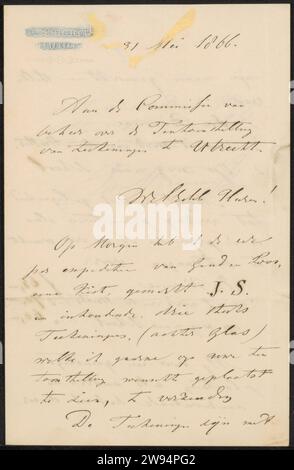 31 Mei 1866.
Aan de Commissie van
beheer over de Tentoonstelling
van teekeningen te Utrecht.
WelEdele Heeren!
Op Morgen heb ik de eer
per expeditie van Gend en Loos,
eene Kist gemerkt J. S.
en inhoudende drie stuks
Teekeningen, (achter Glas)
welke ik gaarne op uwe ten
toonstelling wensch geplaatst
te zien, te verzenden
De Teekeningen zijn met
alamy
Image ID: 2WN94PG2
www.alamy.com